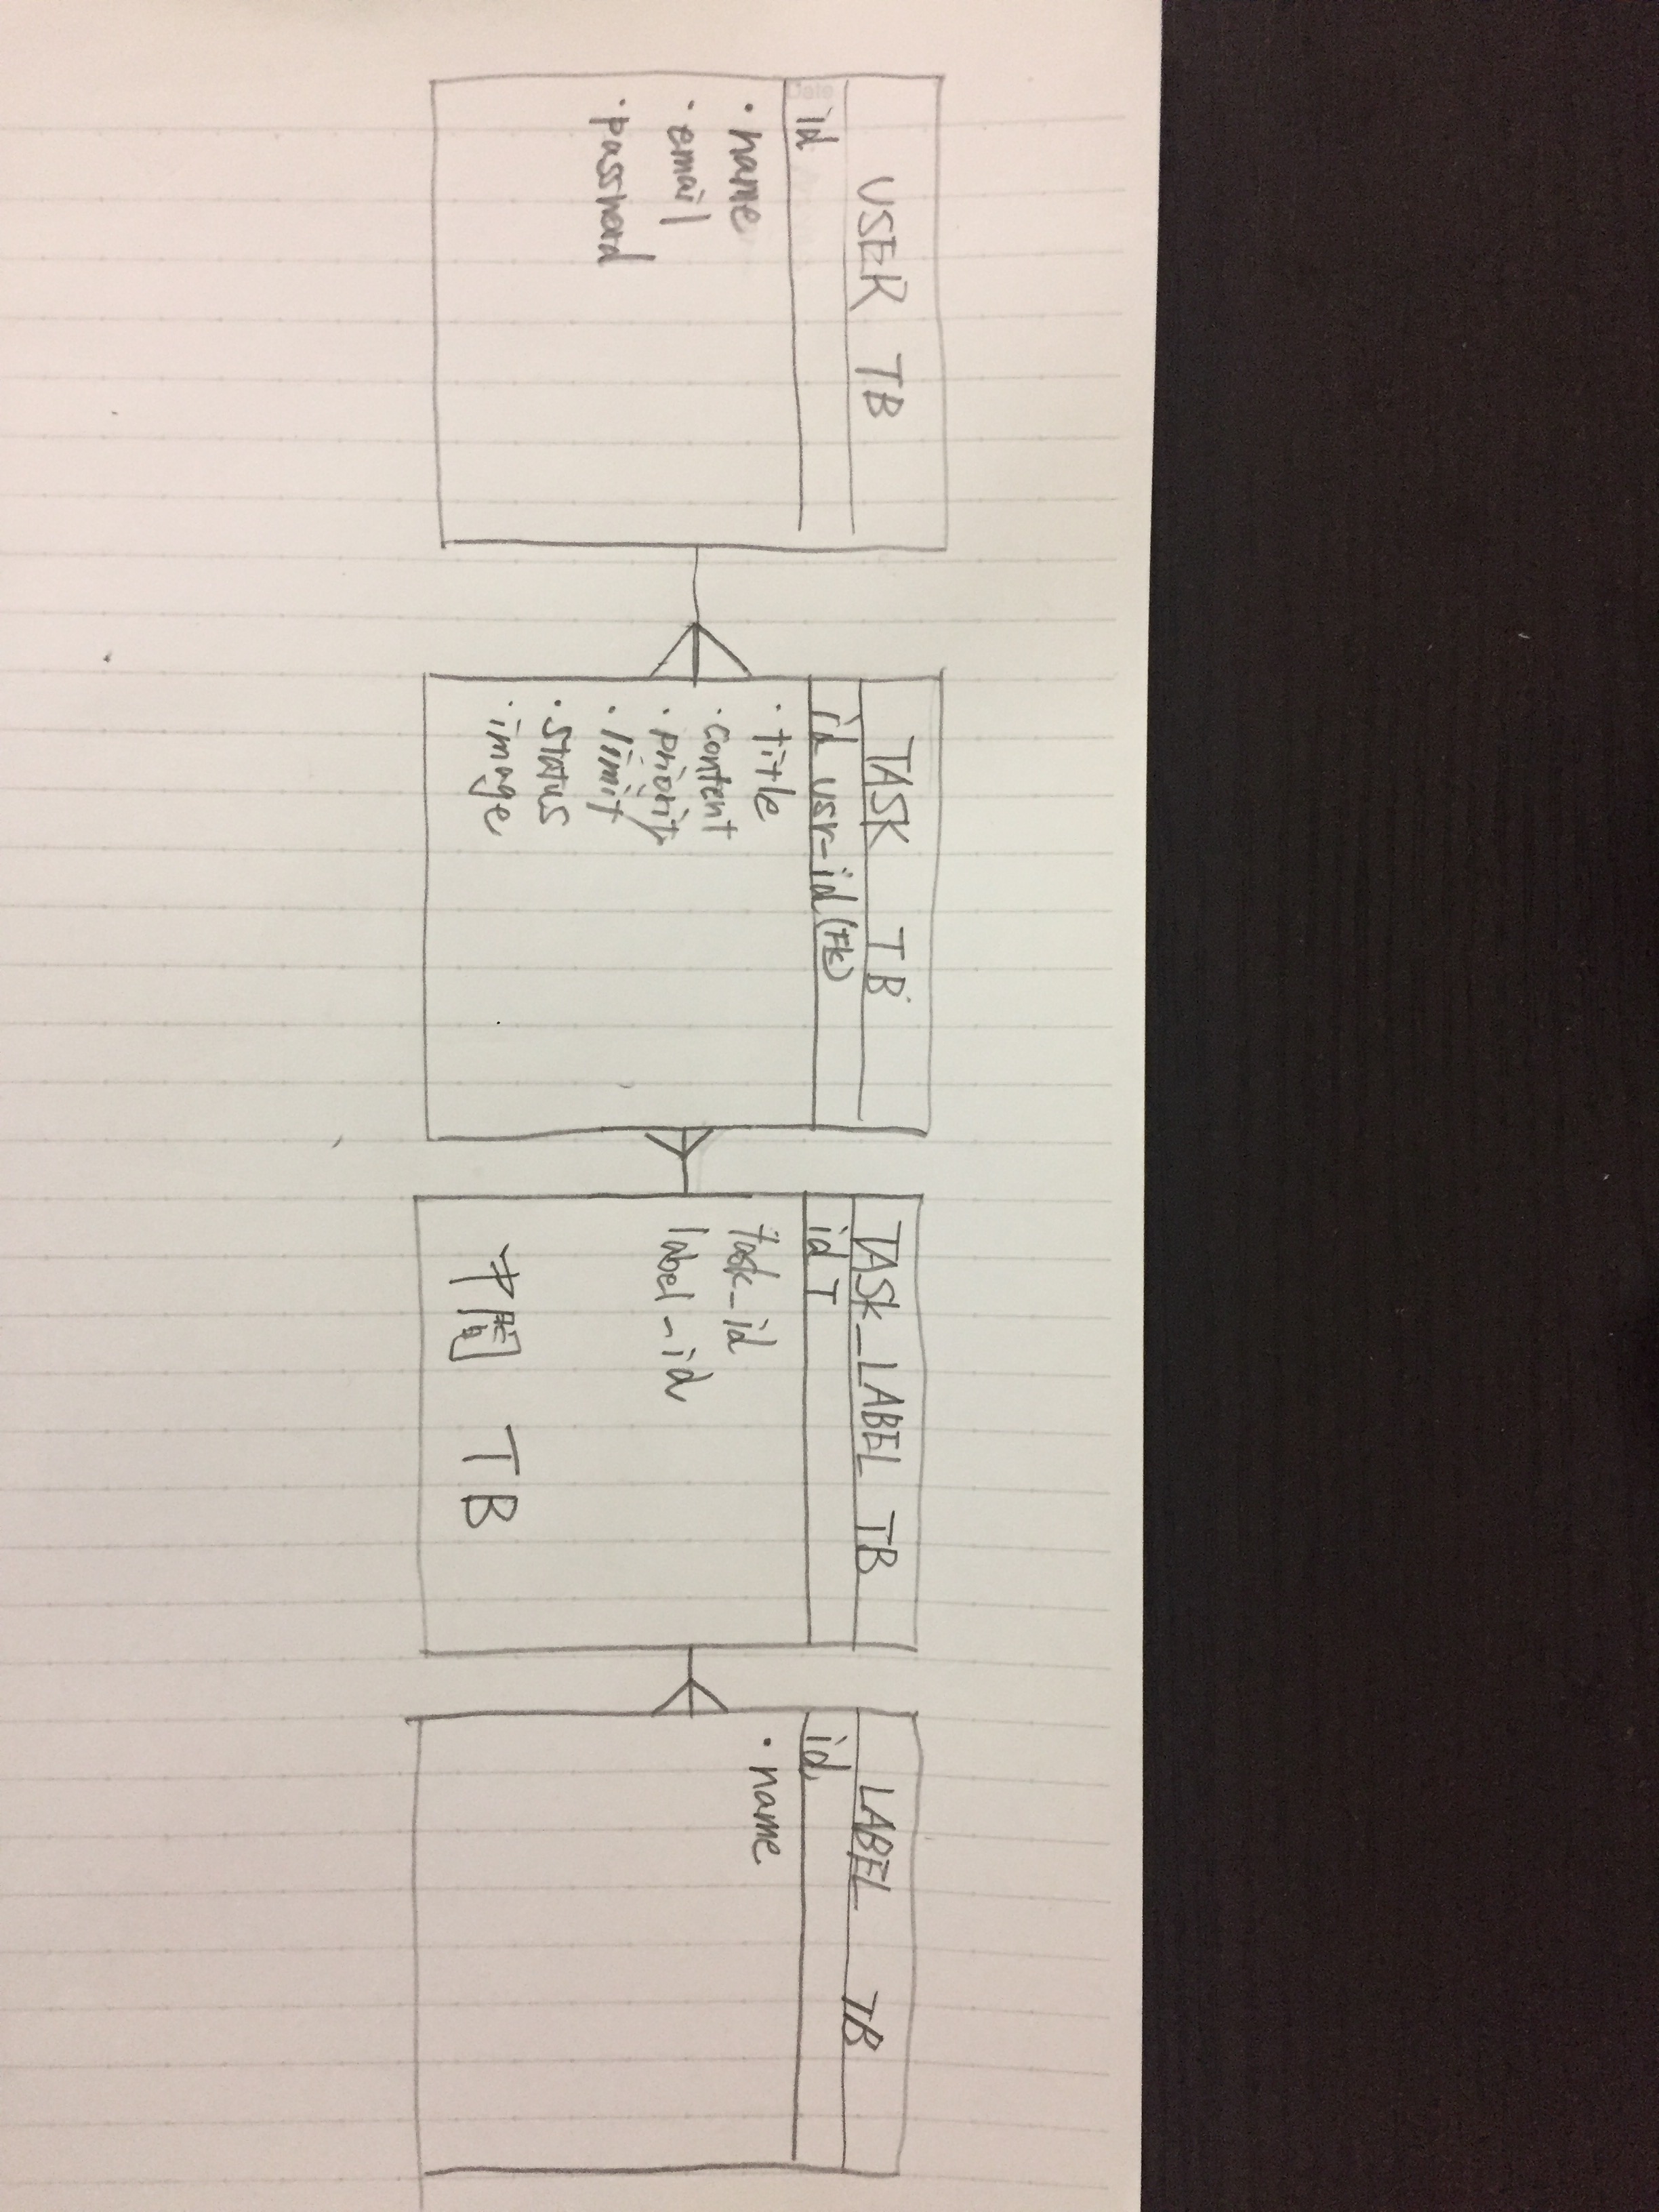 USER TB
id
・name
・email
・password
TASK TB
id usr-id(FK)
・title
・content
・priority
・limit
・status
・image
TASK_LABEL TB
id T
task_id
label_id
中間 TB
LABEL TB
id
・name